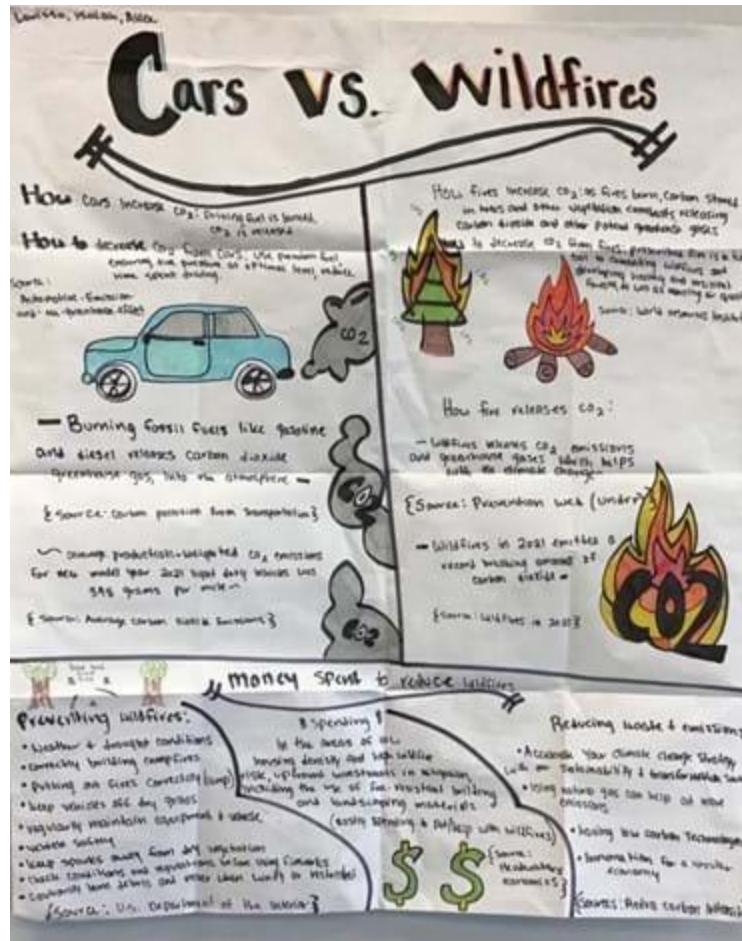 Cars vs. Wildfires
How cars increase CO₂: Driving fuel is burned,
CO₂ is released
How to decrease CO₂ from cars: use premium fuel,
ensuring tire pressure at optimal level, reduce
time spent driving.
Source:
Automotive-Emission
and the greenhouse effect
CO₂
— Burning fossil fuels like gasoline
and diesel releases carbon dioxide
greenhouse gas, into the atmosphere —
{Source: carbon pollution from transportation}
CO₂
~ average production-weighted CO₂ emissions
for new model year 2021 light duty vehicles was
grams per mile ~
{Source: Average carbon dioxide Emissions}
CO2
How fires increase CO₂: as fires burn, carbon stored
in trees and other vegetation combusts releasing
carbon dioxide and other potent greenhouse gases
How to decrease CO₂ from fires: prescribed fire is a
tool to combating wildfires and
developing healthy and resilient
Source: World resources
How fire releases CO₂:
— Wildfires releases CO₂ emissions
and greenhouse gases which helps
with the climate change —
{Source: Prevention web (undrr)}
— Wildfires in 2021 emitted a
record breaking amount of
carbon dioxide —
{Source: Wildfires in 2021}
CO2
money spent to reduce wildfires
Preventing wildfires:
• Weather & drought conditions
• correctly building campfires
• putting out fires correctly
• keep vehicles off dry grass
• regularly maintain equipment & vehicle
• vehicle safety
• keep sparks away from dry vegetation
• check conditions and regulations before using fireworks
• cautiously burn debris and never when windy or restricted
{Source: U.S. Department of the interior}
$ Spending $
In the areas of
housing density and high wildfire
risk, upfront investments in mitigation,
including the use of fire-resistant building
and landscaping materials
wildfires)
$ $
{Source:
Headwaters
economics}
Reducing waste & emissions
• Accelerate your climate change strategy
with sustainability & transformation
• using natural gas can help
emissions
• using low carbon technologies
• innovation for a
economy